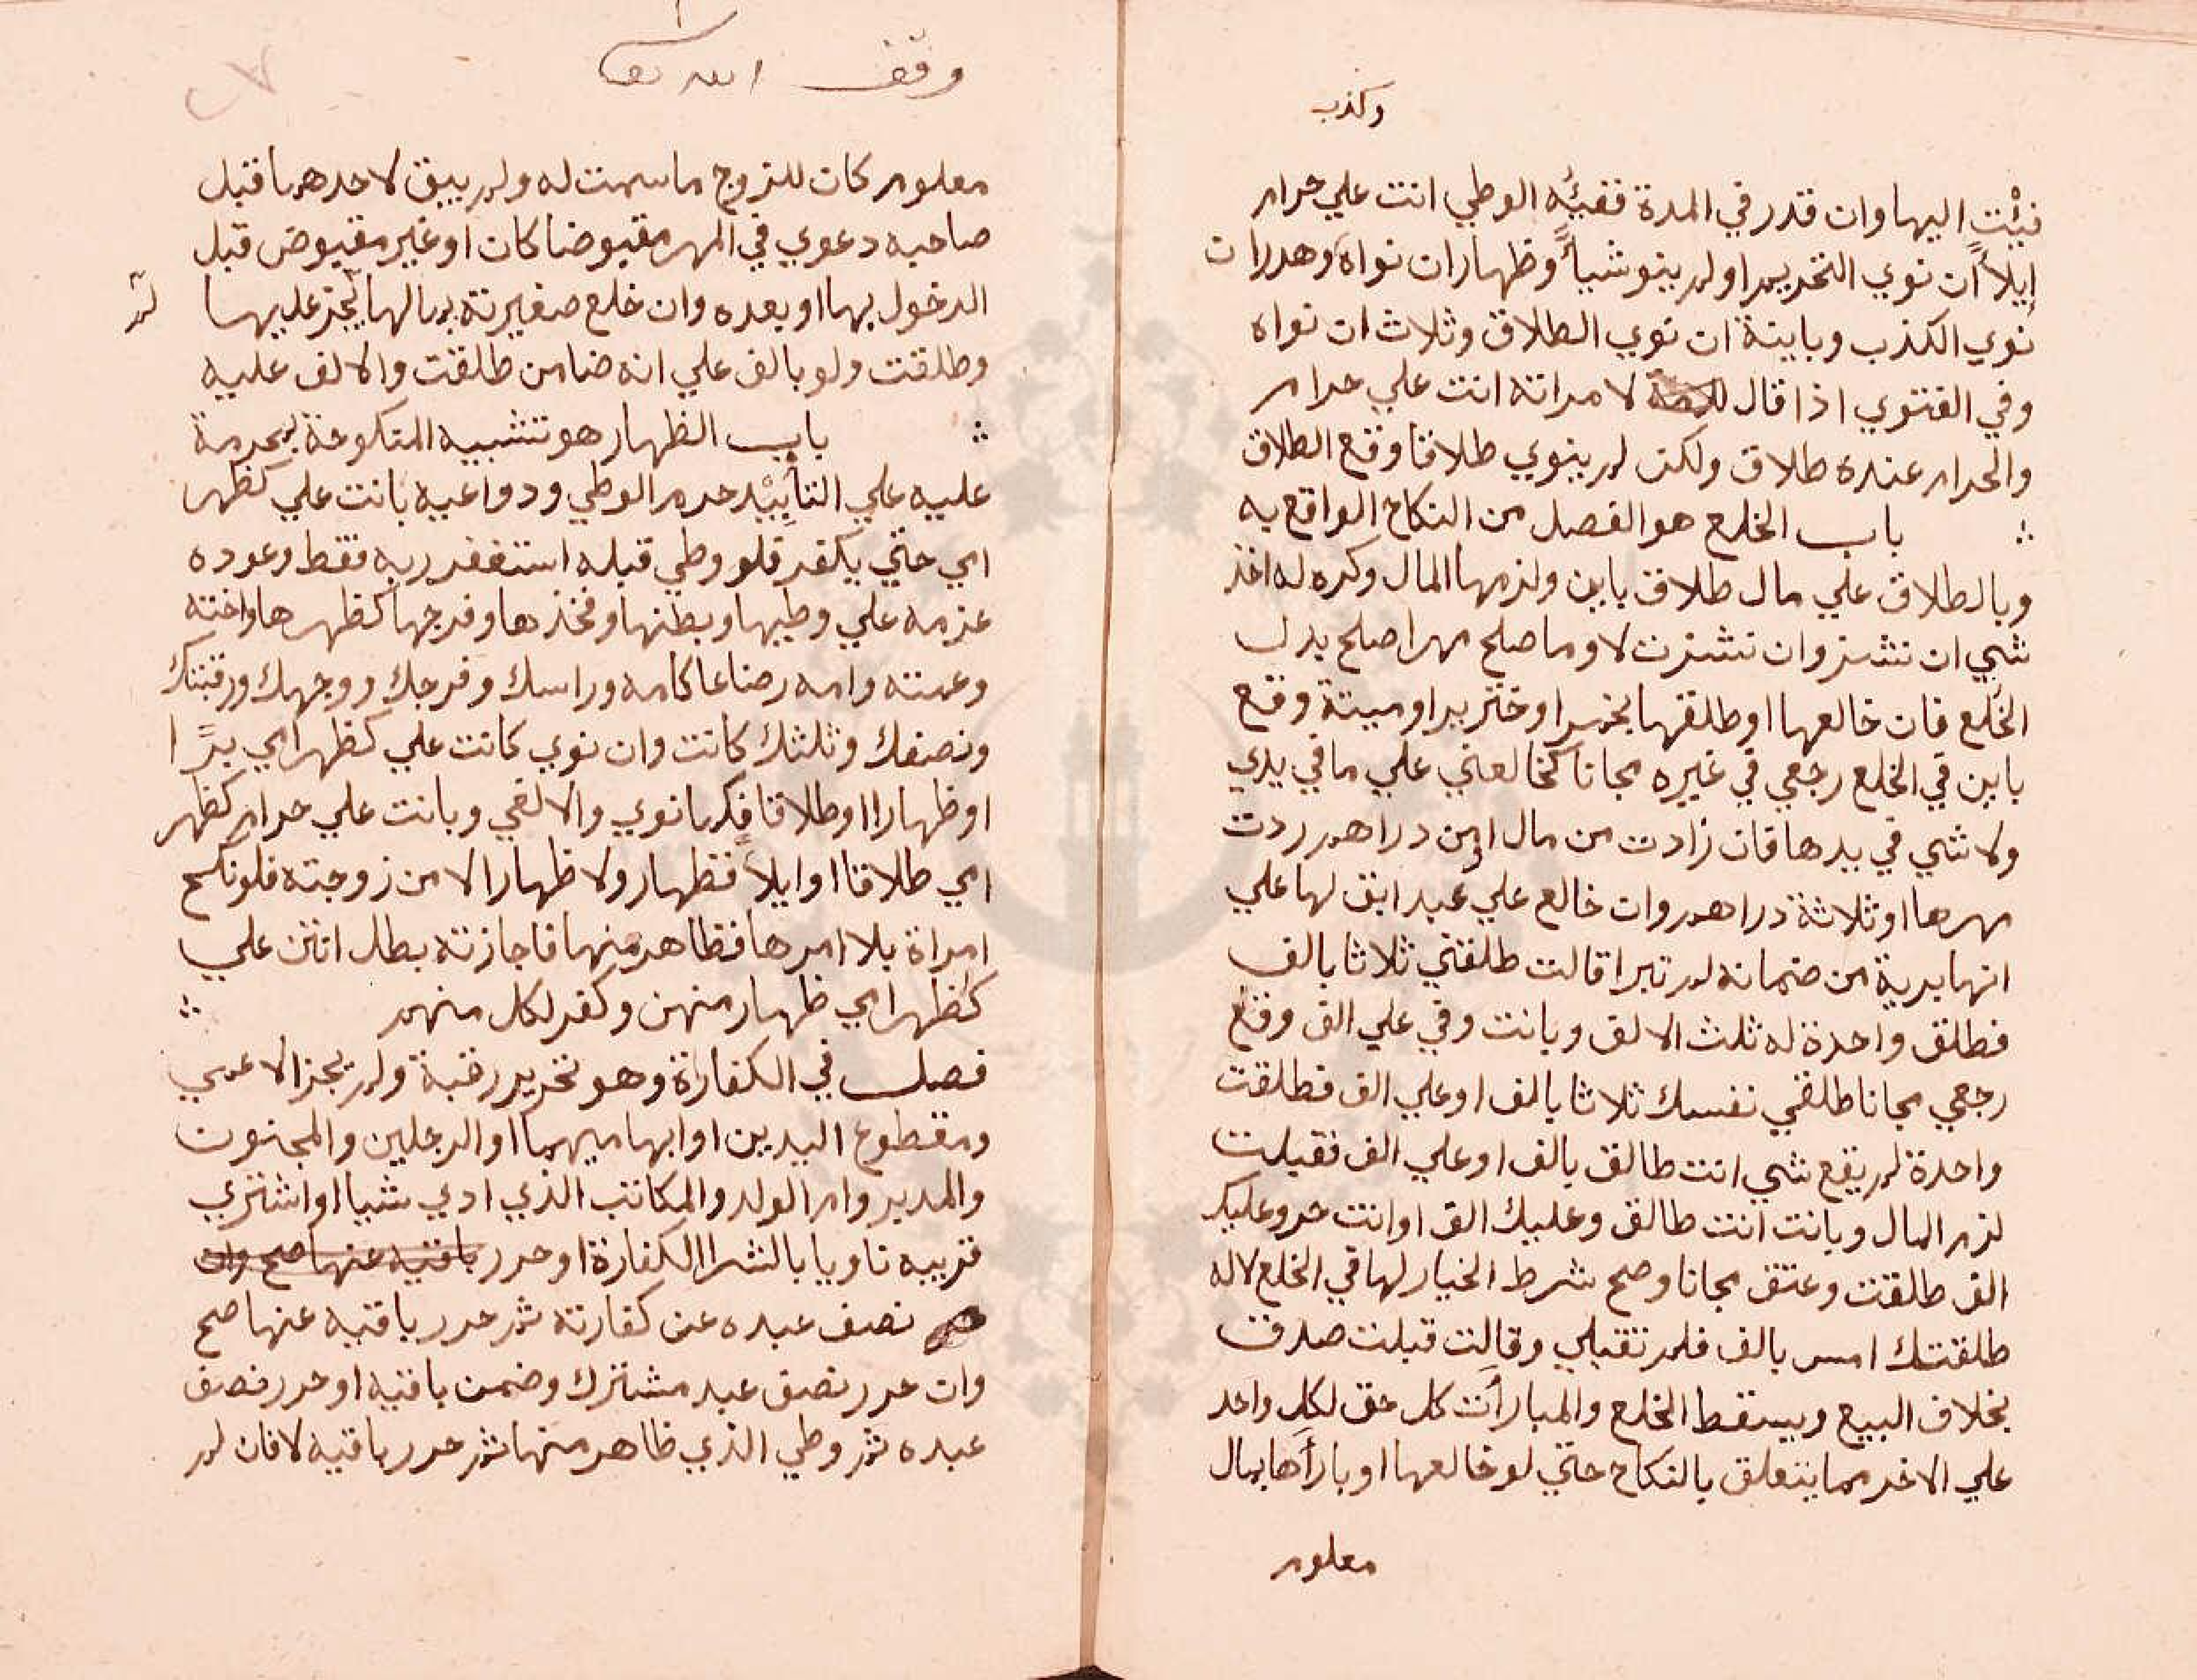 وكذب
فئت اليها وان قدر في المدة ففيئه الوطي انت علي حرام
إيلأً ان نوي التحريم او لم ينو شيأً وظهار ان نواه وهدر ان
نوي الكذب وباينة ان نوي الطلاق وثلاث ان نواه
وفي الفتوي اذا قال لامراته انت علي حرام
والحرام عنده طلاق ولكن لم ينوي طلاقا وقع الطلاق
باب الخلع هو الفصل من النكاح الواقع به
وبالطلاق علي مال طلاق باين ولزمها المال وكره له اخذ
شي ان نشز وان نشزت لا وما صلح مهرا صلح بدل
الخلع فان خالعها او طلقها بخمر او خنزير او ميتة وقع
باين في الخلع رجعي في غيره مجانا كخالعني علي ما في يدي
ولا شي في يدها فان زادت من مال او من دراهم ردت
مهرها او ثلاثة دراهم وان خالع علي عبد ابق لها علي
انها برية من ضمانه لم تبرا قالت طلقني ثلاثا بالف
فطلق واحدة له ثلث الالف وبانت وفي علي الف وقع
رجعي مجانا طلقي نفسك ثلاثا بالف او علي الف فطلقت
واحدة لم يقع شي انت طالق بالف او علي الف فقبلت
لزم المال وبانت انت طالق وعليك الف او انت حر وعليك
الف طلقت وعتق مجانا وصح شرط الخيار لها في الخلع لا له
طلقتك امس بالف فلم تقبلي وقالت قبلت صدق
بخلاف البيع ويسقط الخلع والمبارأت كل حق لكل واحد
علي الاخر مما يتعلق بالنكاح حتي لو خالعها او بارأها بمال
معلوم
وقف الله تعا
معلوم كان للزوج ما سمت له ولم يبق لاحدهما قبل
صاحبه دعوي في المهر مقبوضا كان او غير مقبوض قبل
الدخول بها او بعده وان خلع صغيرته بمالها يجز عليها لم
وطلقت ولو بالف علي انه ضامن طلقت والالف عليه
باب الظهار هو تشبيه المنكوحة بمحرمة
عليه علي التأييد حرم الوطي ودواعيه بانت علي كظهر
امي حتي يكفر فلو وطي قبله استغفر ربه فقط وعوده
عزمه علي وطيها وبطنها وفخذها وفرجها كظهرها واخته
وعمته وامه رضاعا كامه وراسك وفرجك ووجهك ورقبتك
ونصفك وثلثك كانت وان نوي كانت علي كظهر امي برًا
او ظهارا او طلاقا فكما نوي والا لغي وبانت علي حرام كظهر
امي طلاقا او ايلأً فظهار ولا ظهارا الا من زوجته فلو نكح
امراة بلا امرها فظاهر منها فاجازته بطل انتن علي
كظهر امي ظهار منهن وكفر لكل منهم
فصل في الكفارة وهو تحرير رقبة ولم يجز الاعمي
ومقطوع اليدين او ابهاميهما او الرجلين والمجنون
والمدبر وام الولد والمكاتب الذي ادي شيا او اشتري
قريبه ناويا بالشرا الكفارة او حرر باقيه عنها صح وان
نصف عبده عن كفارته ثم حرر باقيه عنها صح
وان حرر نصف عبد مشترك وضمن باقيه او حرر نصف
عبده ثم وطي الذي ظاهر منها ثم حرر باقيه لا فان لم